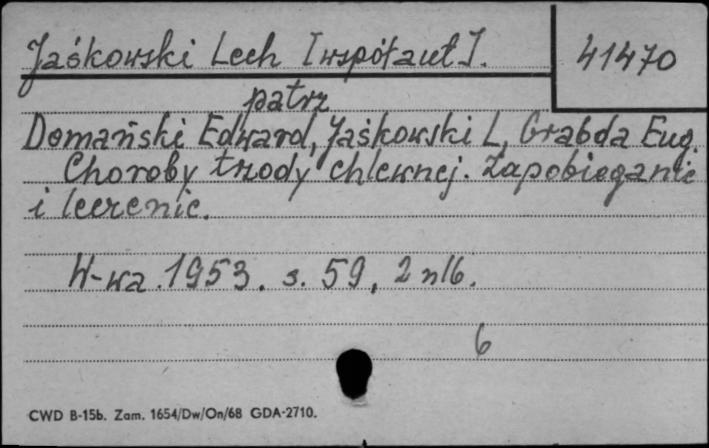 Jaśkowski Lech [współaut]. 41470
patrz
Domański Edward, Jaśkowski L, Grabda Eug.
Choroby trzody chlewnej. Zapobieganie
i leczenie.
W-wa. 1953. s. 59, 2 nlb.
6
CWD B-15b. Zam. 1654/Dw/On/68 GDA-2710.